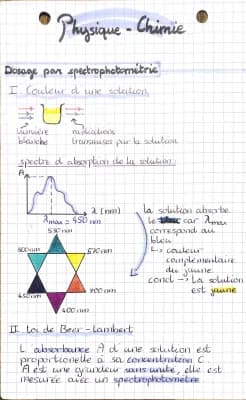 Physique - Chimie
Dosage par spectrophotométrie
I Couleur d'une solution
lumière blanche
radiations transmises par la solution
spectre d'absorption de la solution:
A
λ (nm)
λmax = 450 nm
la solution absorbe
le bleu car λmax
correspond au
bleu
↳ couleur
complémentaire
du jaune
concl → la solution
est jaune
530 nm
500 nm
570 nm
450 nm
700 nm
400 nm
II Loi de Beer-Lambert
L'absorbance A d'une solution est
proportionnelle à sa concentration C.
A est une grandeur sans unité, elle est
mesurée avec un spectrophotomètre